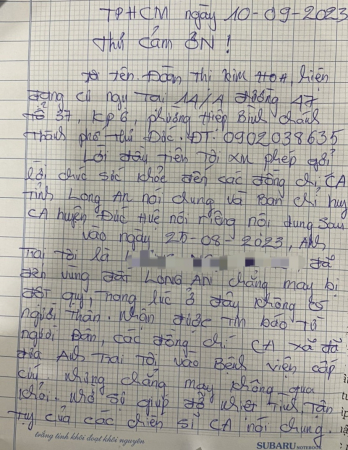 TPHCM ngày 10-09-2023
thư cảm ơn!
Tôi tên Đoàn Thị Kim Hoa, hiện
đang cư ngụ tại 1A/A đường 47
tổ 37, Kp6, phường Hiệp Bình chánh
thành phố thủ Đức. ĐT: 0902038635
Lời đầu tiên tôi xin phép gởi
lời chúc sức khỏe đến các đồng chí CA
tỉnh Long An nói chung và Ban chỉ huy
CA huyện Đức Huệ nói riêng nội dung sau
vào ngày 25-08-2023, Anh
trai tôi là đã
đến vùng đất LONG AN chẳng may bị
đột quỵ, trong lúc ở đây không có
người thân. Nhận được tin báo từ
người Dân, các đồng chí CA xã đã
đưa Anh Trai Tôi vào Bệnh viện cấp
cứu nhưng chẳng may không qua
khỏi. Nhờ sự giúp đỡ nhiệt tình, tận
tụy của các chiến sĩ CA nói chung.
trắng tinh khôi đoạt khôi nguyên
SUBARU NOTEBOOK